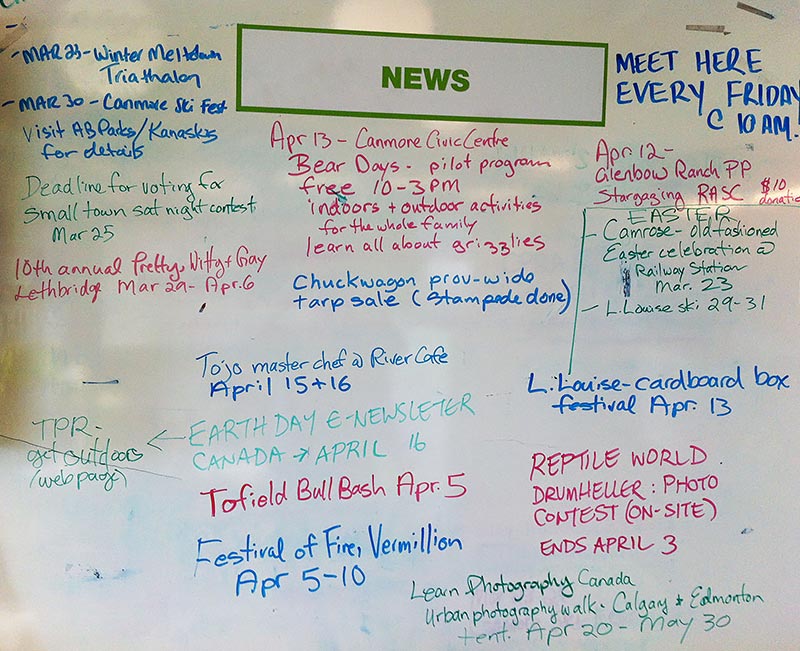 NEWS
MEET HERE
EVERY FRIDAY
@ 10 AM!
- MAR 23 - Winter Meltdown
Triathalon
- MAR 30 - Canmore Ski Fest
Visit AB Parks/Kanaskis
for details
Deadline for voting for
small town sat night contest
Mar 25
10th annual Pretty, Witty + Gay
Lethbridge Mar 29 - Apr. 6
Apr 13 - Canmore Civic Centre
Bear Days - pilot program
free 10-3 PM
indoors + outdoor activities
for the whole family
learn all about grizzlies
Chuckwagon prov-wide
tarp sale (Stampede done)
Apr 12 -
Glenbow Ranch PP
Stargazing RASC $10
donation
EASTER
- Camrose - old-fashioned
Easter celebration @
Railway Station
Mar. 23
- L. Louise ski 29-31
Tojo master chef @ River Cafe
April 15 + 16
L. Louise - cardboard box
festival Apr. 13
TPR -
get outdoors
(webpage)
← EARTH DAY E-NEWSLETER
CANADA → APRIL 16
Tofield Bull Bash Apr. 5
REPTILE WORLD
DRUMHELLER: PHOTO
CONTEST (ON-SITE)
ENDS APRIL 3
Festival of Fire, Vermillion
Apr 5-10
Learn Photography Canada
Urban photography walk - Calgary + Edmonton
tent. Apr 20 - May 30